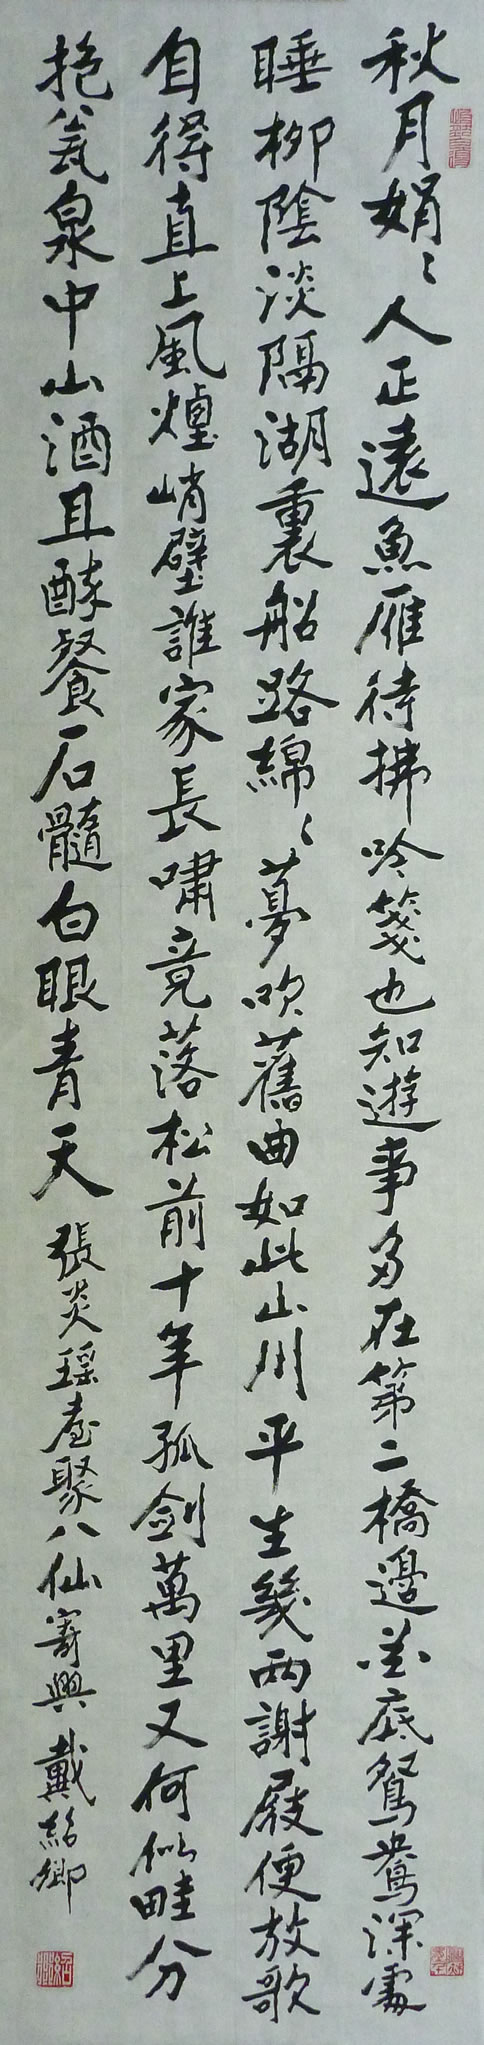 秋月娟〻人正遠魚雁待拂吟箋也知遊事多在第二橋邊花底鴛鴦深處
睡柳陰淡隔湖裏船路綿〻夢吹舊曲如此山川平生幾兩謝屐便放歌
自得直上風煙峭壁誰家長嘯竟落松前十年孤劍萬里又何似畦分
抱瓮泉中山酒且醉餐石髓白眼青天張炎瑤臺聚八仙寄興戴紹卿